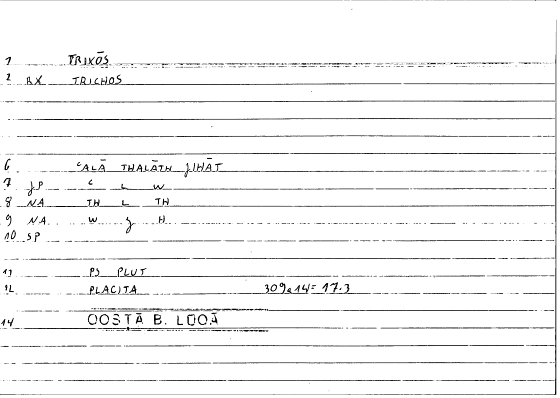 1 TRIXŌS
2 RX TRICHOS
6 ʿALĀ THALĀTH JIHĀT
7 JP ʿ L W
8 NA TH L TH
9 NA W J H
10 SP
11 PS PLUT
12 PLACITA 309a14=17.3
14 QOSṬĀ B. LŪQĀ